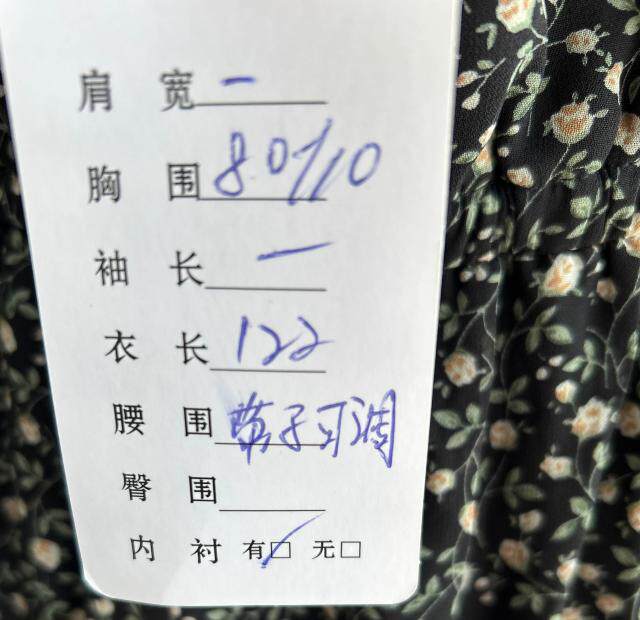 肩 宽 一
胸 围 80/110
袖 长 一
衣 长 122
腰 围 带子可调
臀 围
内 衬 有☑ 无□